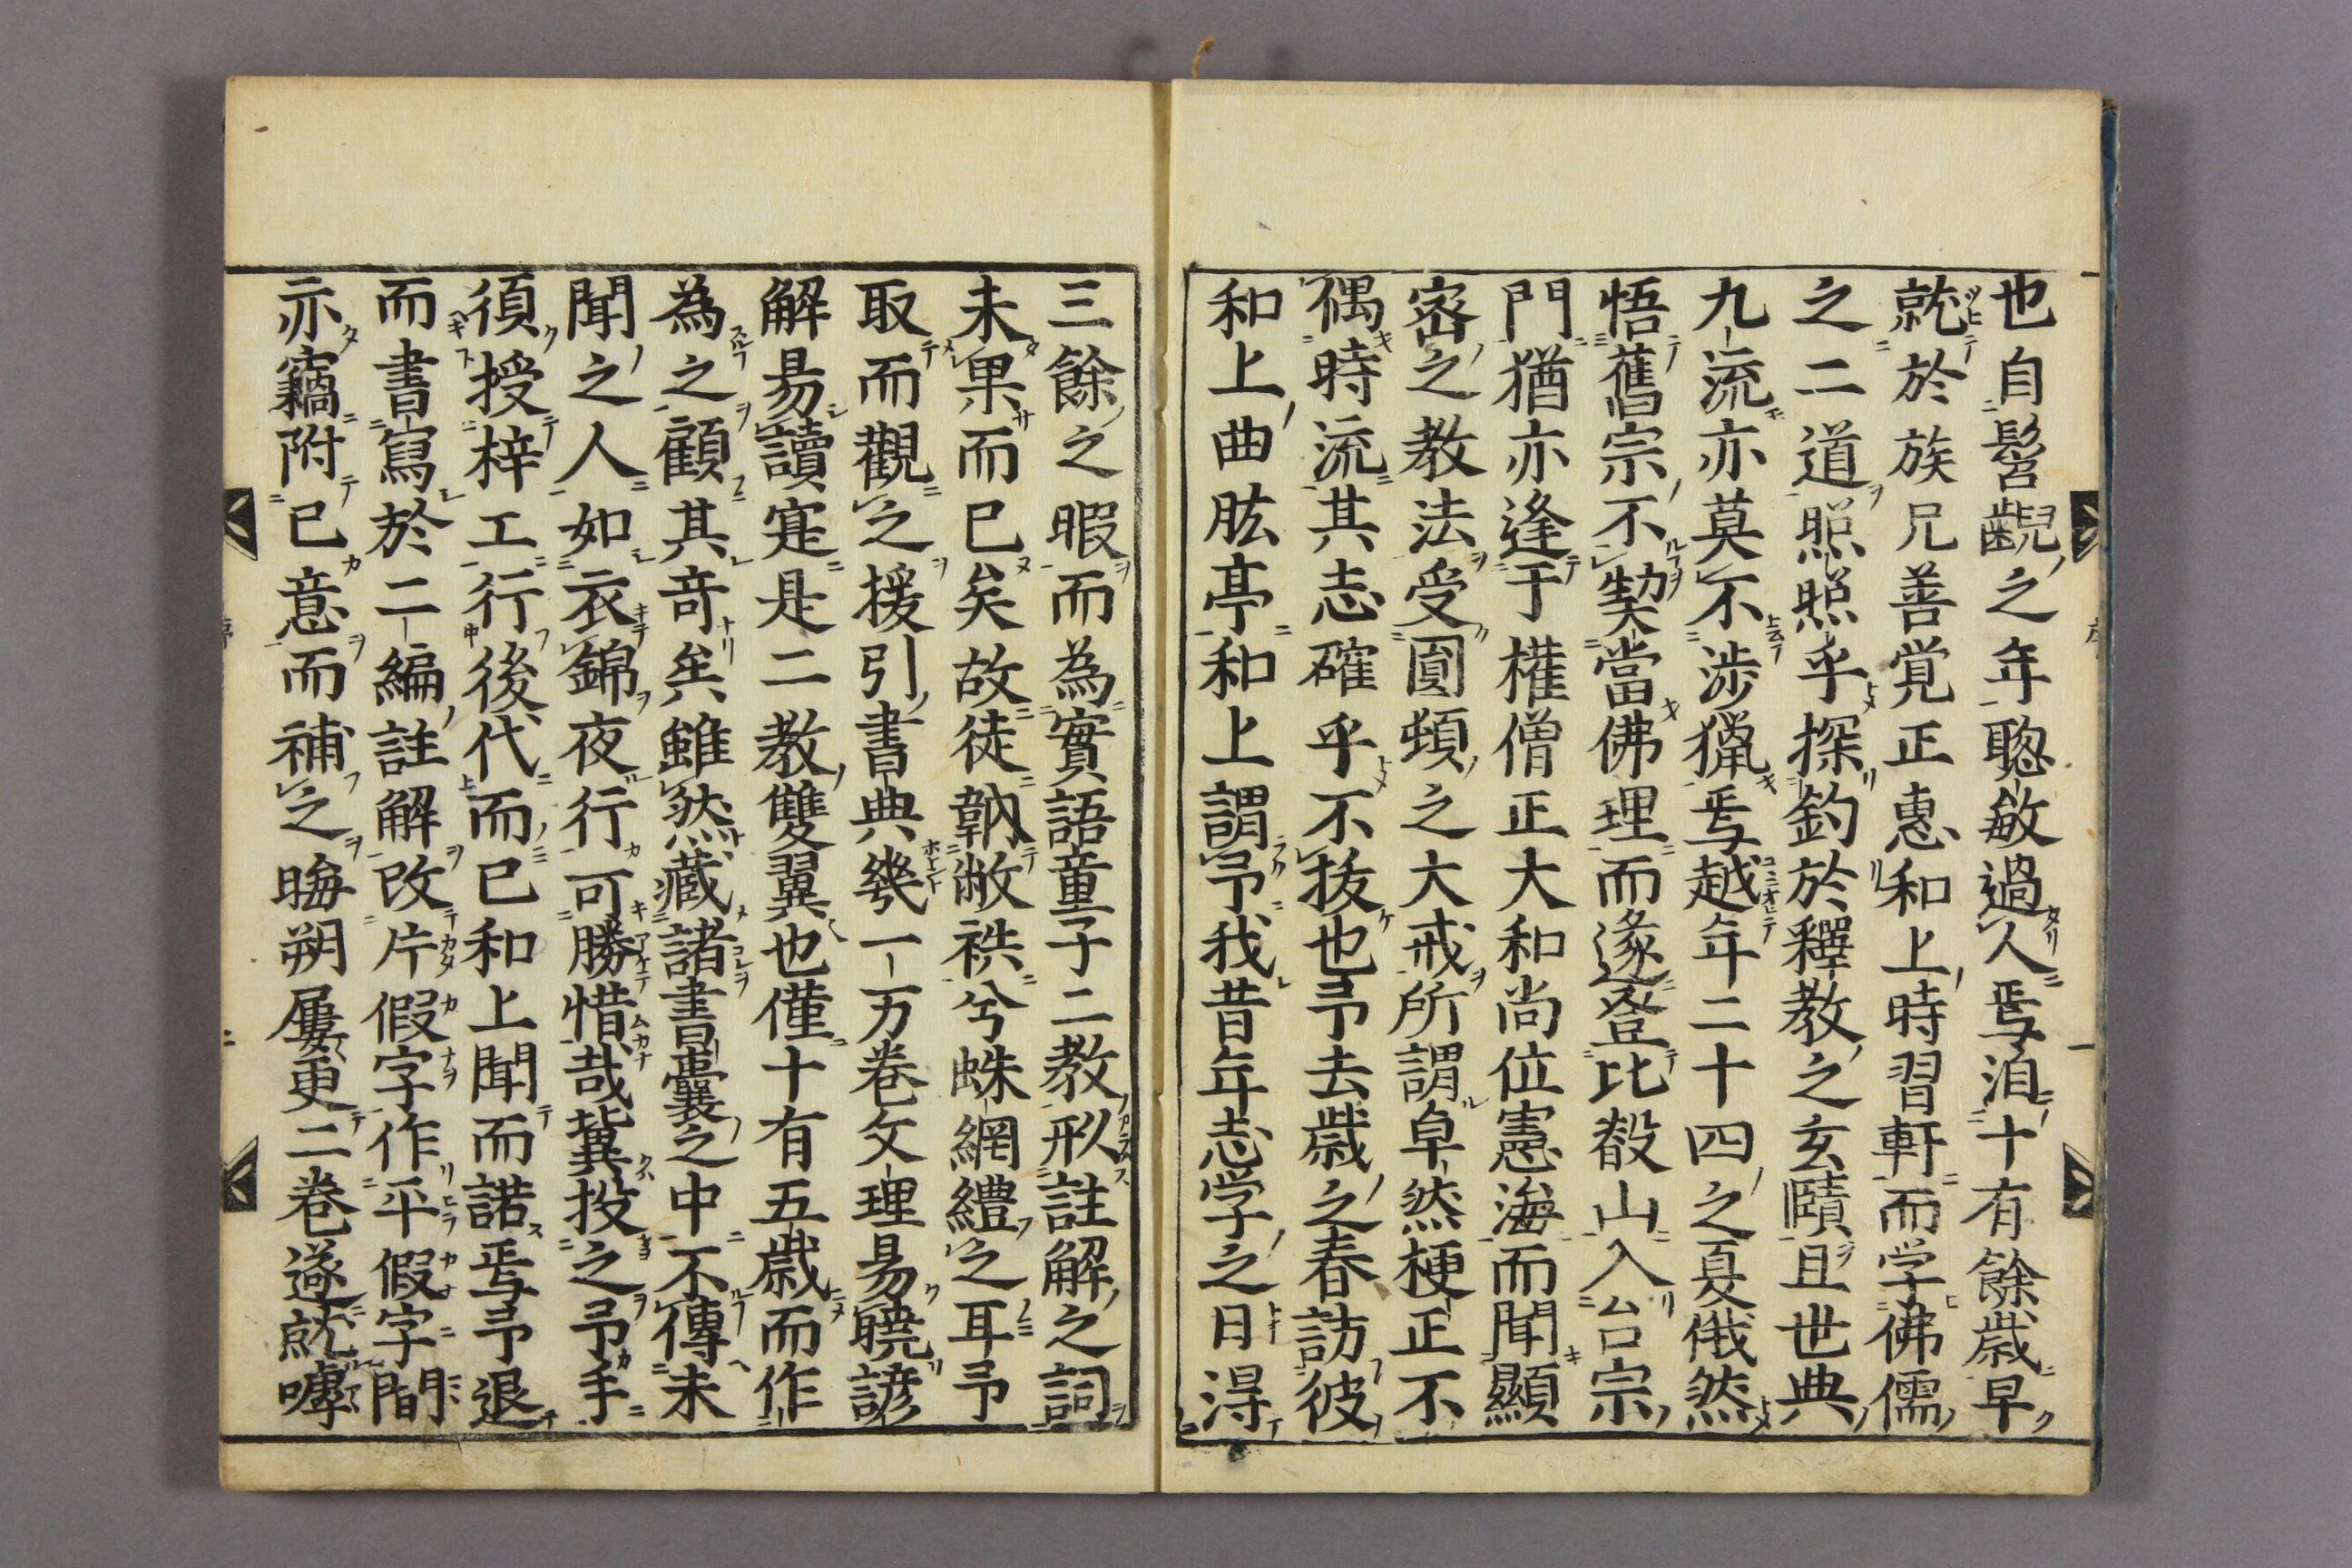 也自髫齯之年聰敏過人焉洎十有餘歳早
就於族兄善覚正惠和上時習軒而学佛儒
之二道照照乎探釣於釋教之玄賾且世典
九流亦莫不渉獵焉越年二十四之夏俄然
悟舊宗不契當佛理而遂登比叡山入台宗
門猶亦逢于權僧正大和尚位憲海而聞顯
密之教法受圓頓之大戒所謂卓然梗正不
偶時流其志確乎不抜也予去歳之春訪彼
和上曲肱亭和上謂予我昔年志学之日得
三餘之暇而為實語童子二教形註解之詞
未果而已矣故徒韌敝袟兮蛛網縛之耳予
取而觀之援引書典幾一一万卷文理易聴諺
解易讀寔是二教雙翼也僅十有五歳而作
為之顧其竒矣雖然藏諸書囊之中不傳未
聞之人如衣錦夜行可勝惜哉冀投之予手
須授梓工行後代而已和上聞而諾焉予退
而書寫於二編註解改片假字作平假字間
亦竊附已意而補之晦朔屢更二巻遂就嘑